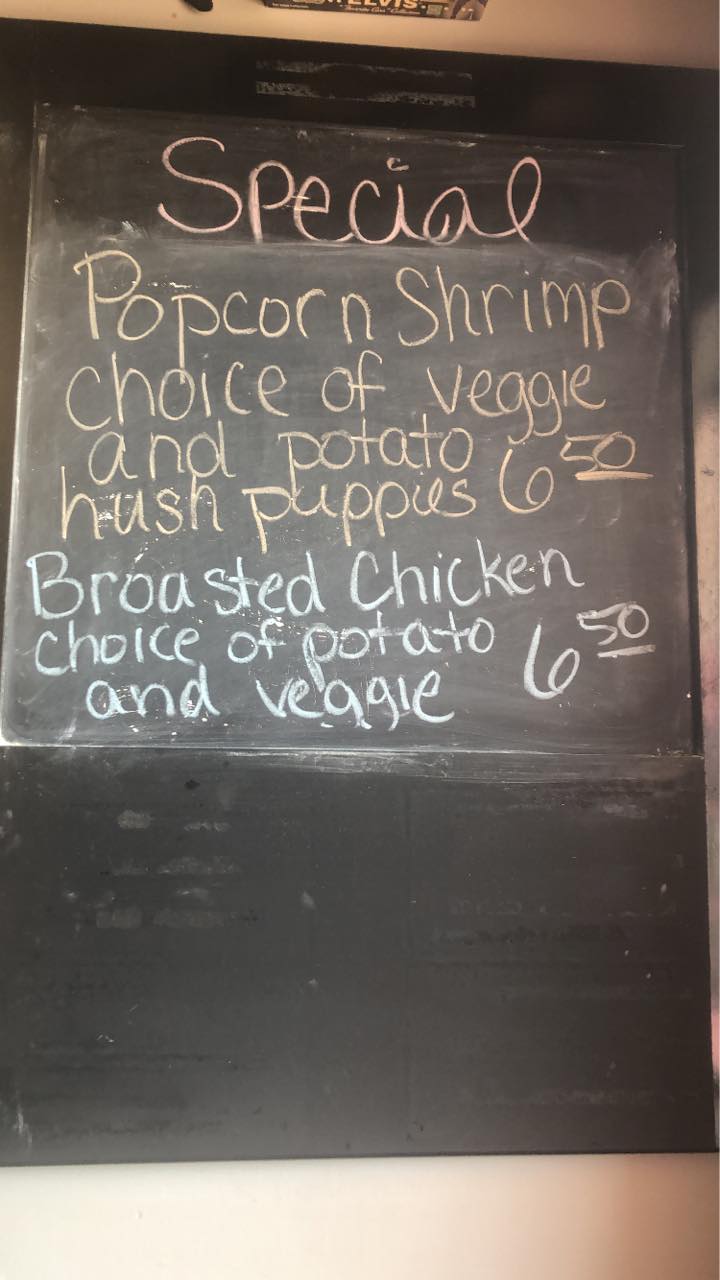 ELVIS
Special
Popcorn Shrimp
choice of veggie
and potato
hush puppies 6 50
Broasted Chicken
choice of potato 6 50
and veggie